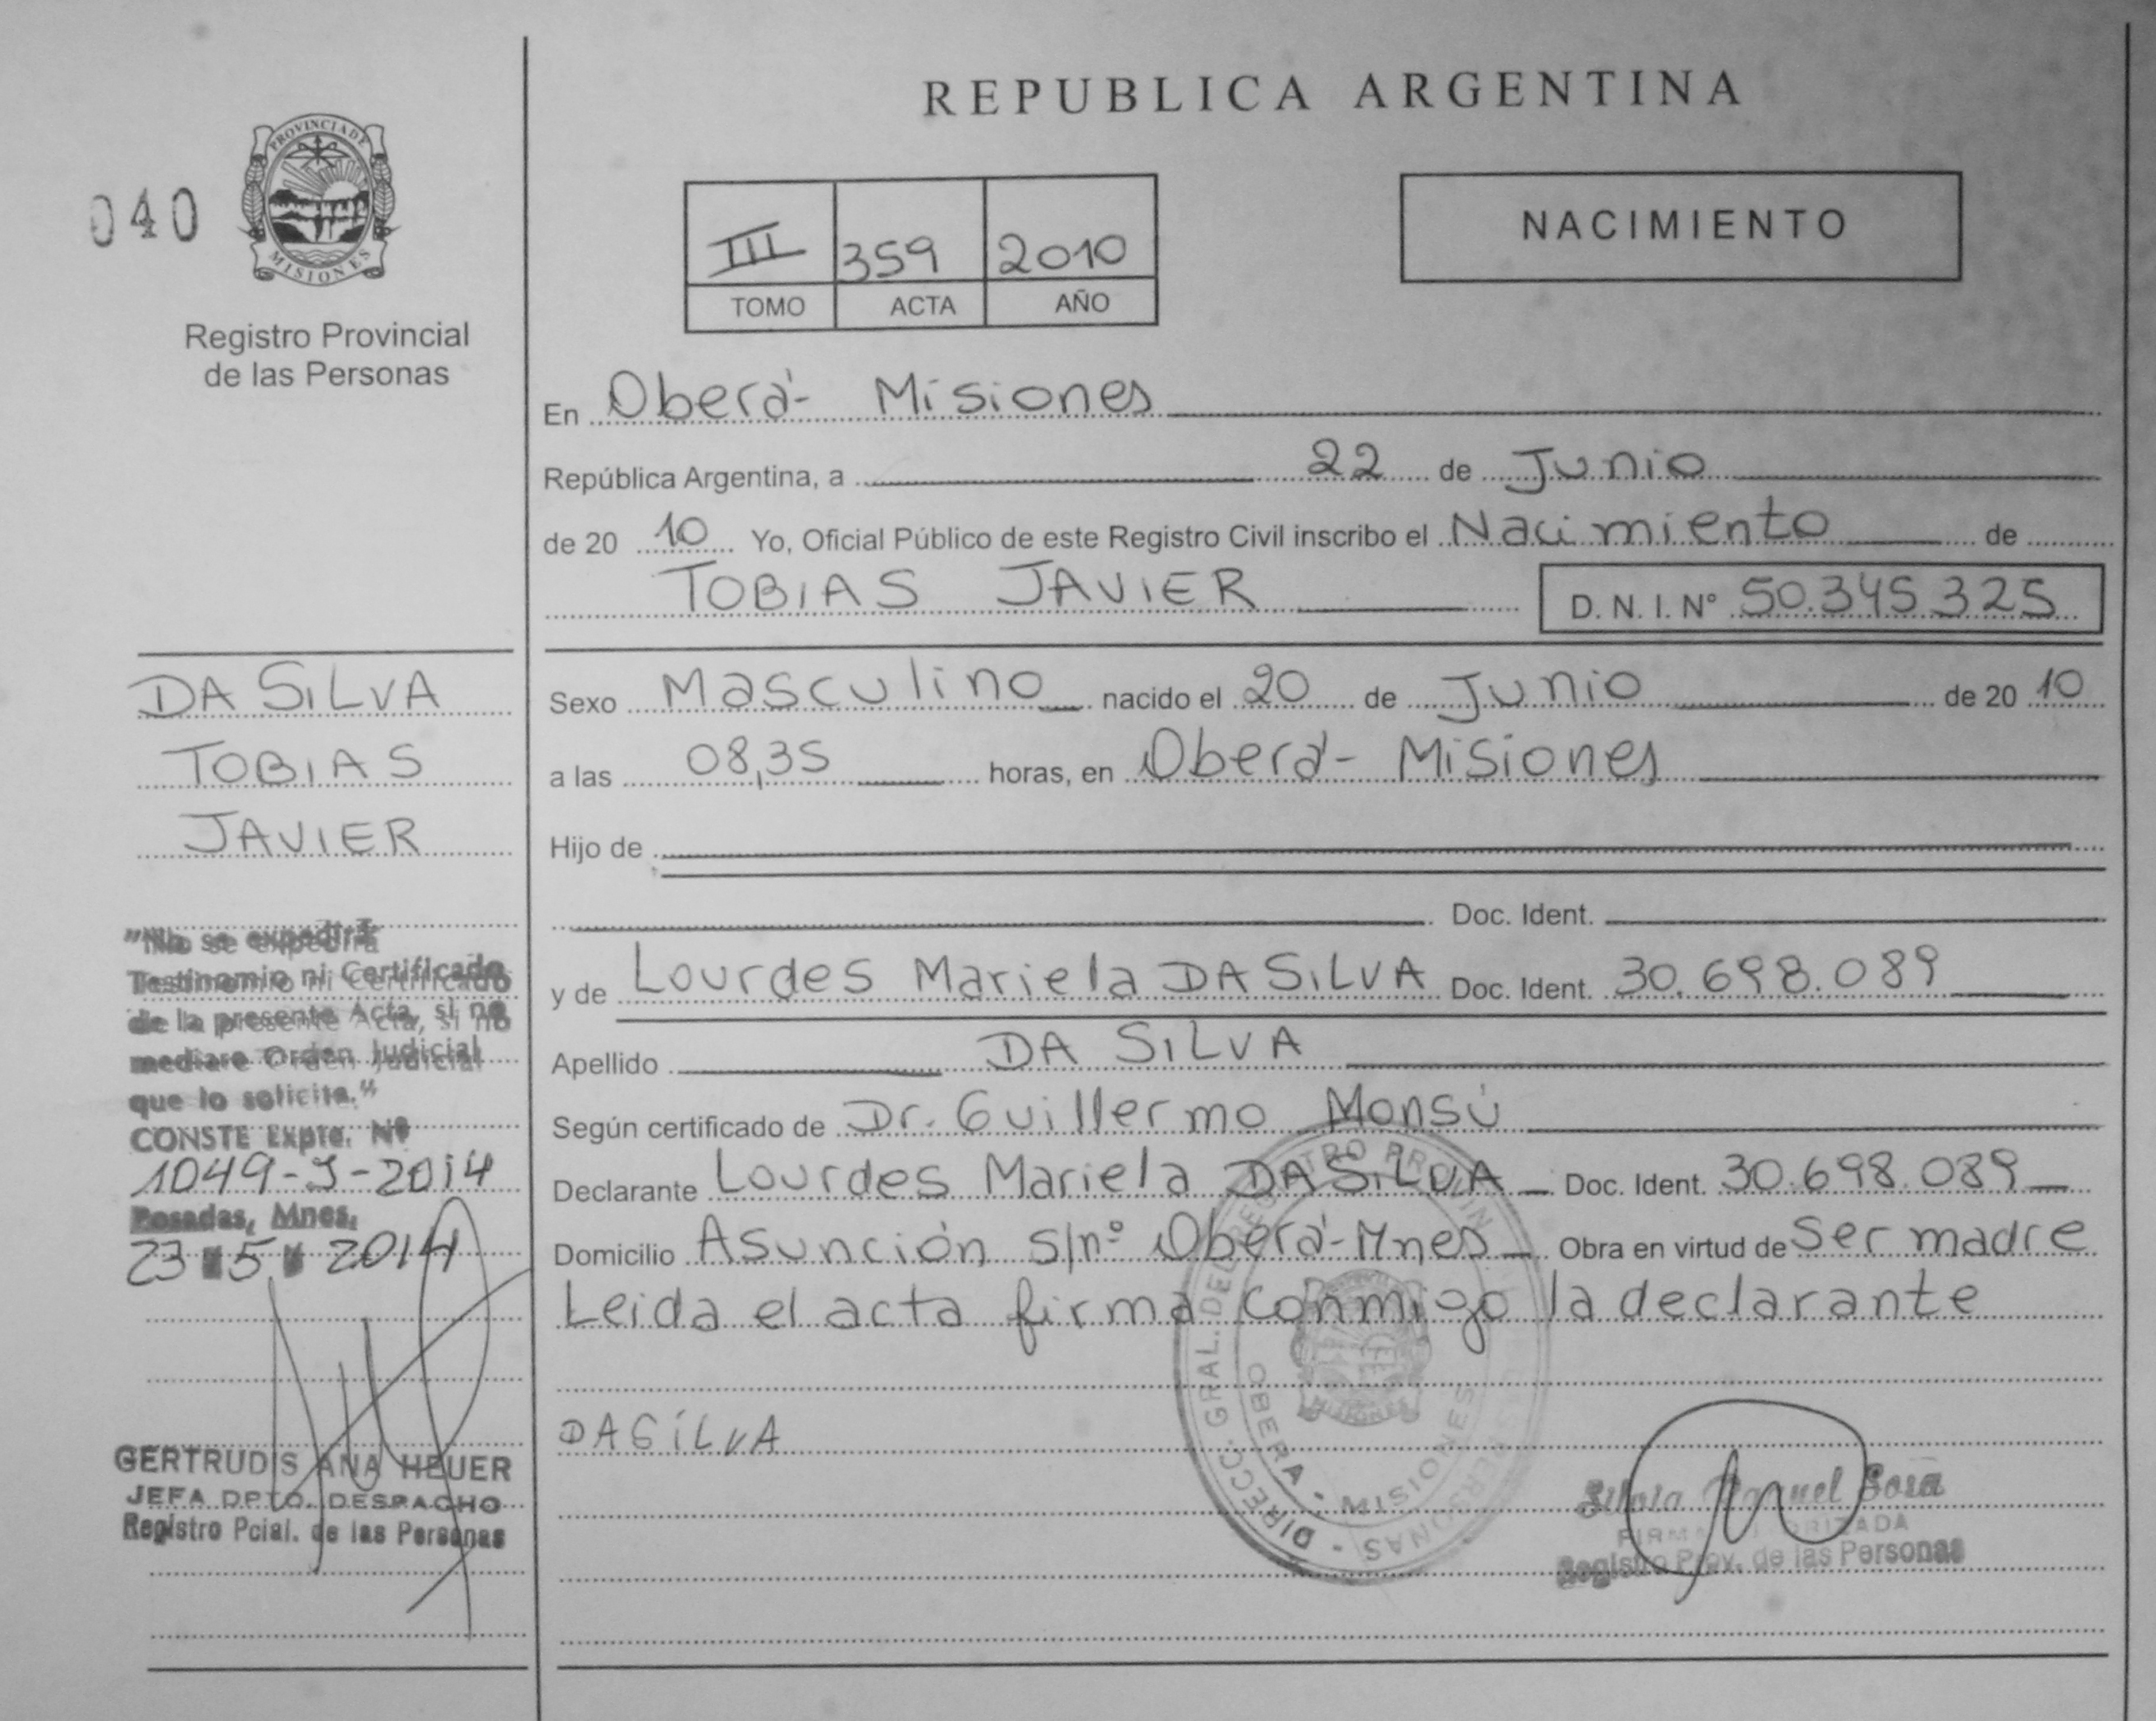 REPUBLICA ARGENTINA
040
PROVINCIA DE
MISIONES
Registro Provincial
de las Personas
III 359 2010
TOMO ACTA AÑO
NACIMIENTO
En Oberá- Misiones
República Argentina, a 22 de Junio
de 20 10 Yo, Oficial Público de este Registro Civil inscribo el Nacimiento de
TOBIAS JAVIER D. N. I. Nº 50.345.325
DA SiLVA
TOBIAS
JAVIER
"No se expedirá
Testimonio ni Certificado
de la presente Acta, si no
mediare Orden Judicial
que lo solicite."
CONSTE Expte. Nº
1049-J-2014
Posadas, Mnes,
23 5 2014
GERTRUDIS ANA HEUER
JEFA DPTO. DESPACHO
Registro Pcial. de las Personas
Sexo Masculino nacido el 20 de Junio de 20 10
a las 08,35 horas, en Oberá- Misiones
Hijo de
Doc. Ident.
y de Lourdes Mariela DA SiLVA Doc. Ident. 30.698.089
Apellido DA SiLVA
Según certificado de Dr. Guillermo Monsú
Declarante Lourdes Mariela DA SiLVA Doc. Ident. 30.698.089
Domicilio Asunción s/nº Oberá-Mnes Obra en virtud de Ser madre
Leida el acta firma conmigo la declarante
DASíLVA
DIRECC. GRAL. DEL REGISTRO PROVIN PERSONAS
OBERA - MISIONES
Silvia Raquel Sosa
FIRMA AUTORIZADA
Registro Prov. de las Personas